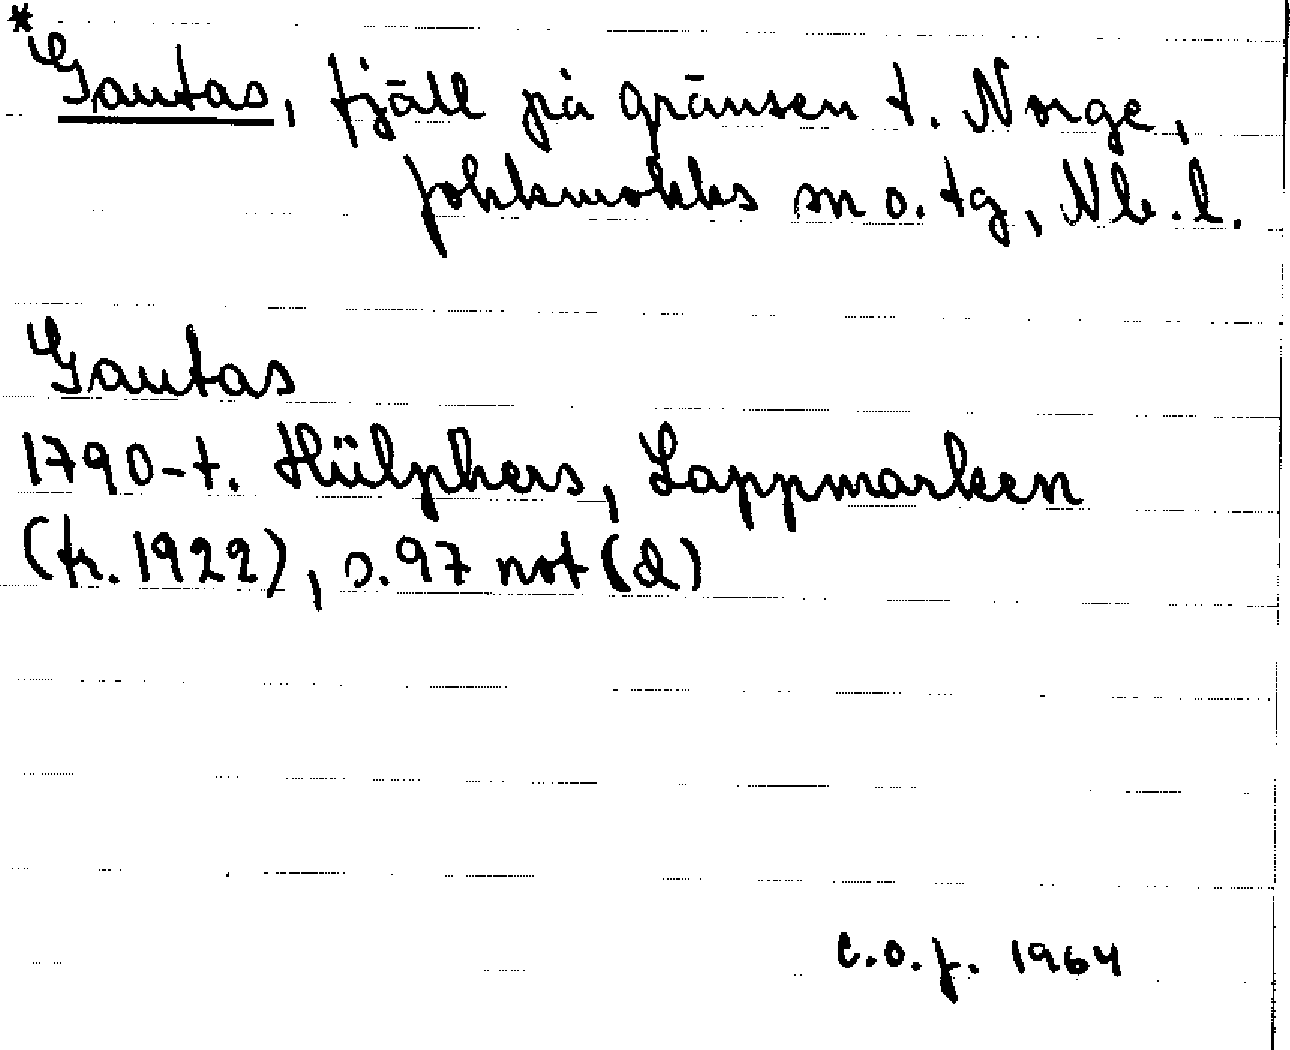 *Gautas, fjäll på gränsen t. Norge,
Jokkmokks sn o. tg, Nb. l.
Gautas
1790-t. Hülphers, Lappmarken
(tr. 1922), s. 97 not (d)
C.O.J. 1964